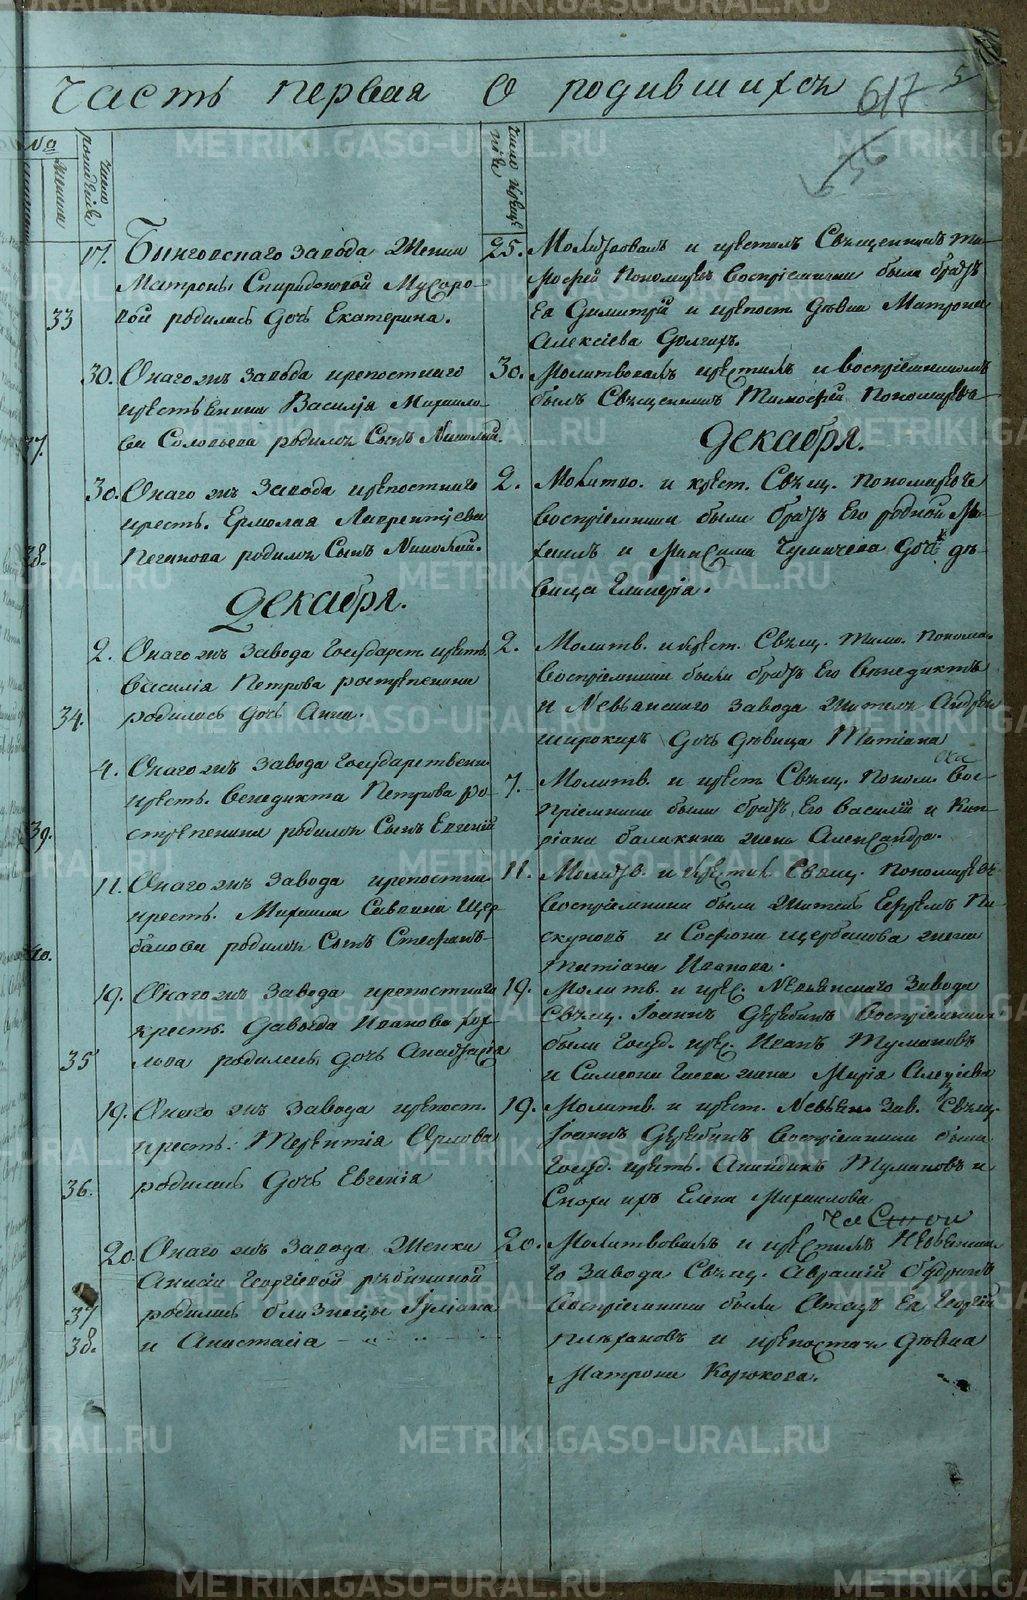 Часть первая О родившихся
617
5
число рождения
число крещенія
17. Бынговскаго завода Женки
Матроны Спиридоновой Мусоро-
33 вой родилась дочь Екатерина.
25. Молитвовалъ и крестилъ Священникъ Ти-
мофей Пономаревъ воспріемники были братъ
Ея Димитрій и крѣпост. дѣвка Матрона
Алексіева
30. Онагожъ завода крепостнаго
крестьянина Василія Михайло-
37. ва Соловьева родился Сынъ Николай.
30. Молитвовалъ крестилъ и воспріемникомъ
былъ Священникъ Тимофей Пономаревъ
Декабря.
30. Онаго жъ завода крепостнаго
кресть. Ермолая Лаврентіева
38. родился Сынъ Николай.
2. Молитво. и крест. Свящ. Пономаревъ
воспріемники были братъ Его родной
и Максима Чумичева дочь дѣ-
вица Гликерія.
Декабря.
2. Онаго жъ завода Государст. кресть.
Василія Петрова
34. родилась дочь Анна.
2. Молитв. и крест. Свящ. Тимо. Понома.
Воспріемники были братъ Его Венедиктъ
и Невьянскаго завода житель Андрей
Широкихъ дочь дѣвица Татіана
4. Онаго жъ завода Государственн.
кресть. Венедикта Петрова
39. родился Сынъ Евгеній
7. Молитв. и крест. Свящ. Поном. Вос-
пріемники были братъ Его Василій и Кип-
ріана Балакина жена Александра.
11. Онаго жъ завода крепостна.
кресть. Михаила Саввина Щер-
40. бакова родился Сынъ Стефанъ
11. Молитв. и крестил Свящ. Пономаревъ
Воспріемники были житель Ефремъ Пи-
скуновъ и Софона Щербакова жена
Татіана Иванова.
19. Онаго жъ завода крепостнаго
кресть. Давыда Иванова
35 родилась дочь Анастасія
19. Молитв. и крес. Невьянскаго завода
Свящ. Іоаннъ Дерябинъ Воспріемники
были Госуд. крес. Иванъ Тумановъ
и Симеона жена Марія Алексіева
19. Онаго жъ завода крепост.
кресть. Терентія Орлова
36. родилась дочь Евгенія
19. Молитв. и крест. Невьян. зав. Свящ.
Іоаннъ Дерябинъ Воспріемники были
Госуд. кресть. Тумановъ и
Елена Михаилова
20. Онаго жъ завода Женки
Анисіи Георгіевой Рябининой
37 родились близнецы Іуліана
38. и Анастасіа
20. Молитвовалъ и крестилъ Невьянска-
го завода Свящ. Аврамій
Воспріемники были Отецъ Ея Георгій
Плехановъ и крепостная дѣвка
Матрона Корюкова.